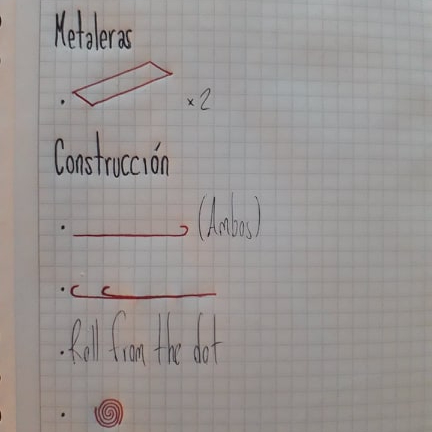 Metaleras
x2
Construcción
(Ambos)
Roll from the dot